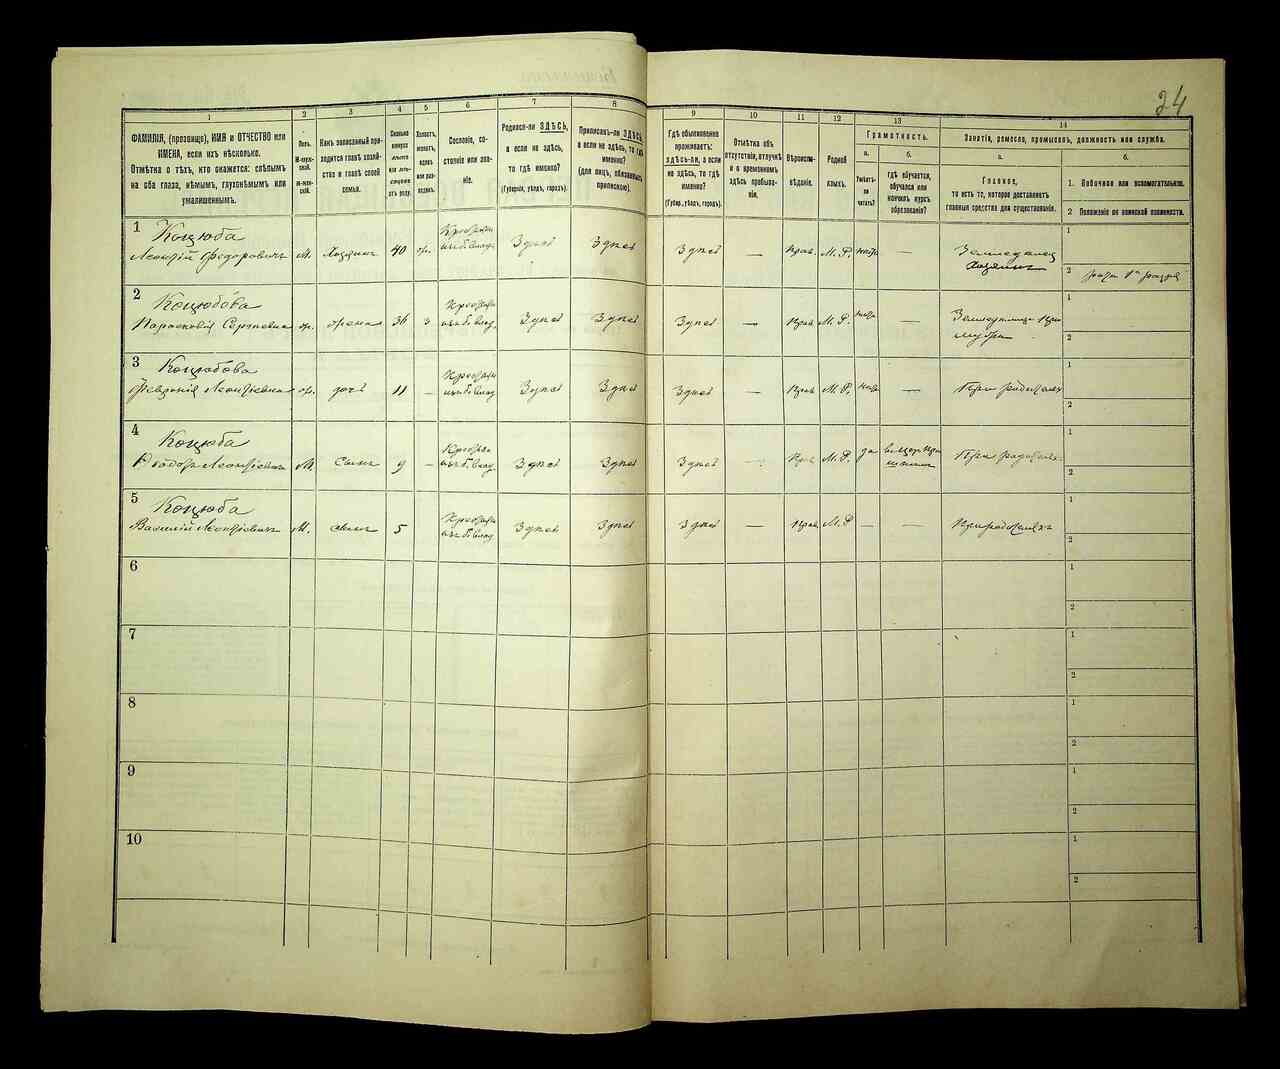 24
1
2
3
4
5
6
7
8
9
10
11
12
13
14
ФАМИЛІЯ, (прозвище), ИМЯ и ОТЧЕСТВО или
ИМЕНА, если ихъ нѣсколько.
Отмѣтка о тѣхъ, кто окажется: слѣпымъ
на оба глаза, нѣмымъ, глухонѣмымъ или
умалишеннымъ.
Полъ.
М-муж-
ской.
Ж-жен-
скій.
Какъ записанный при-
ходится главѣ хозяй-
ства и главѣ своей
семьи.
Сколько
минуло
лѣтъ
или мѣся-
цевъ
отъ роду.
Холостъ,
женатъ,
вдовъ
или раз-
веденъ.
Сословіе, со-
стояніе или зва-
ніе.
Родился-ли ЗДѢСЬ,
а если не здѣсь,
то гдѣ именно?
(Губернія, уѣздъ, городъ).
Приписанъ-ли ЗДѢСЬ,
а если не здѣсь, то гдѣ
именно?
(для лицъ, обязанныхъ
припиской).
Гдѣ обыкновенно
проживаетъ:
здѣсь-ли, а если
не здѣсь, то гдѣ
именно?
(Губер., уѣздъ, городъ).
Отмѣтка объ
отсутствіи, отлучкѣ
и о временномъ
здѣсь пребыва-
ніи.
Вѣроиспо-
вѣданіе.
Родной
языкъ.
Грамотность.
а.
Умѣетъ-
ли
читать?
б.
Гдѣ обучается,
обучался или
кончилъ курсъ
образованія?
Занятіе, ремесло, промыселъ, должность или служба.
а.
Главное,
то есть то, которое доставляетъ
главныя средства для существованія.
б.
1. Побочное или вспомогательное.
2 Положеніе по воинской повинности.
1
Коцюба
Леонтій Федоровичъ
М.
Хозяинъ
40
ж.
Крестьян
изъ б. влад.
Здѣсь
Здѣсь
Здѣсь
—
Прав.
М. Р.
нѣтъ
—
Земледѣлец
Хозяинъ
1
2
2
Коцюбова
Парасковія Сергѣевна
ж.
жена
36
з
Крестьян
изъ б. влад.
Здѣсь
Здѣсь
Здѣсь
—
Прав
М. Р.
нѣтъ
—
Земледѣлица при
мужѣ
1
2
3
Коцюбова
Февронія Леонтіевна
ж.
дочь
11
—
Крестьян
изъ б. влад
Здѣсь
Здѣсь
Здѣсь
—
Прав
М. Р.
нѣтъ
—
При родителяхъ
1
2
4
Коцюба
Ѳедоръ Леонтіевичъ
М.
Сынъ
9
—
Крестьян
изъ б. влад.
Здѣсь
Здѣсь
Здѣсь
—
Прав
М. Р.
да
При родителях
1
2
5
Коцюба
Василій Леонтіевичъ
М.
сынъ
5
Крестьян
изъ б. влад
Здѣсь
Здѣсь
Здѣсь
—
Прав
М. Р
—
—
При родителяхъ
1
2
6
1
2
7
1
2
8
1
2
9
1
2
10
1
2